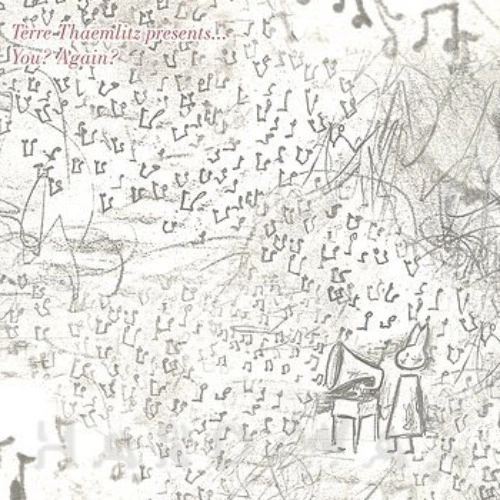 Terre Thaemlitz presents...
You? Again?